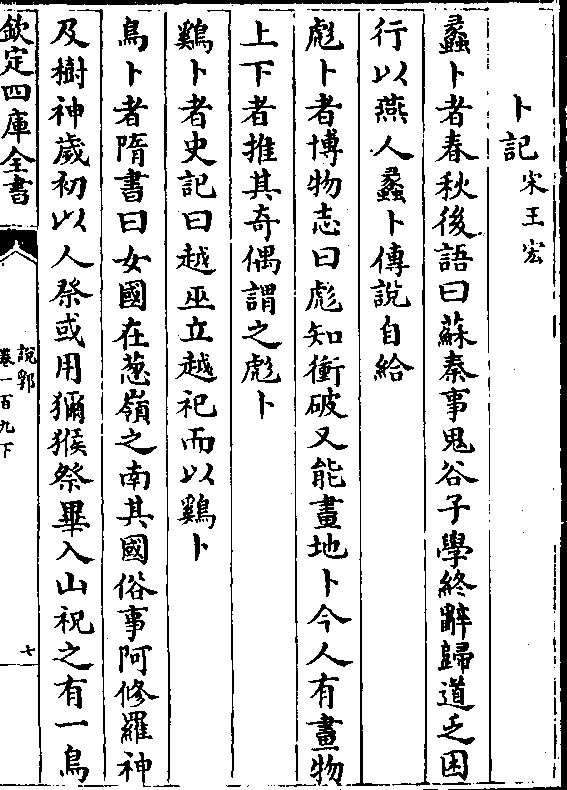 卜記宋王宏
蠡卜者春秋後語曰蘇秦事鬼谷子學終辭歸道乏困
行以燕人蠡卜傳說自給
彪卜者博物志曰彪知衝破又能畫地卜今人有畫物
上下者推其奇偶謂之彪卜
鷄卜者史記曰越巫立越祀而以鷄卜
鳥卜者隋書曰女國在葱嶺之南其國俗事阿修羅神
及樹神歲初以人祭或用獼猴祭畢入山祝之有一鳥
欽定四庫全書
說郛
卷一百九下
七